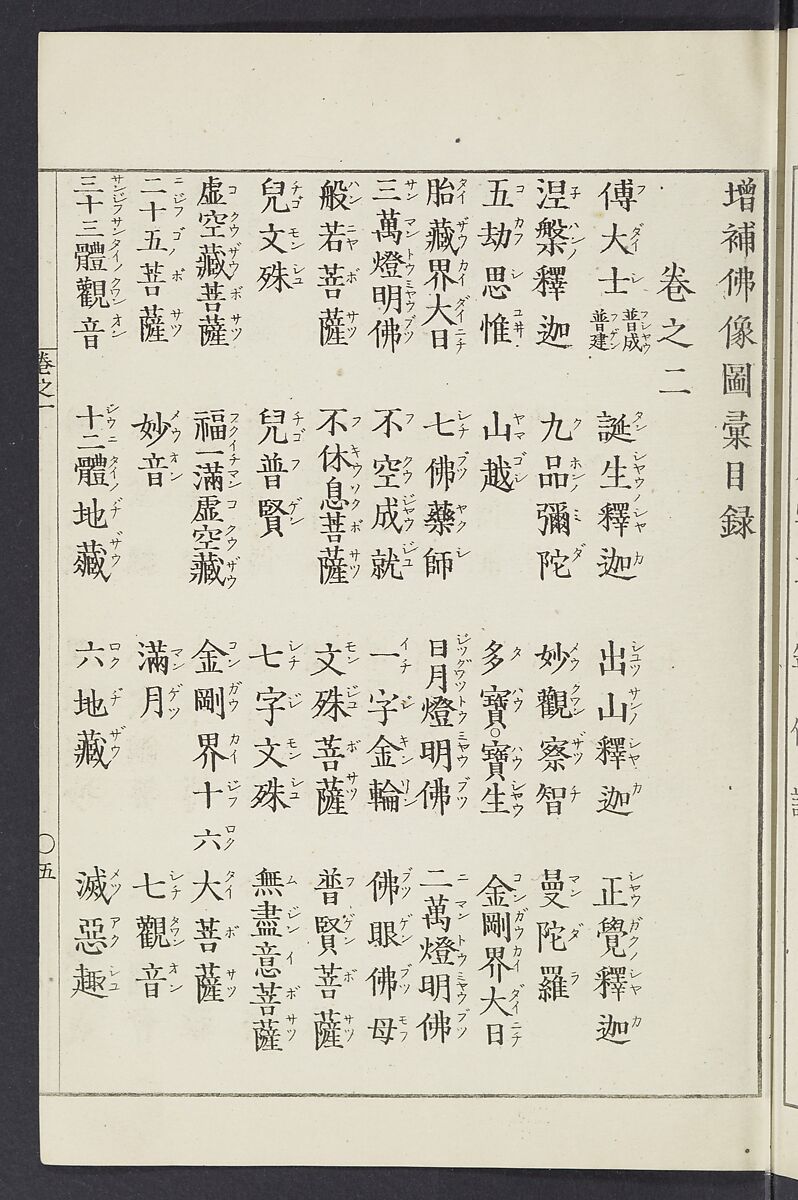 增補佛像圖彙目録
卷之二
傅大士 普成 普建 誕生釋迦 出山釋迦 正覺釋迦
涅槃釋迦 九品彌陀 妙觀察智 曼陀羅
五劫思惟 山越 多寶○寶生 金剛界大日
胎藏界大日 七佛藥師 日月燈明佛 二萬燈明佛
三萬燈明佛 不空成就 一字金輪 佛眼佛母
般若菩薩 不休息菩薩 文殊菩薩 普賢菩薩
兒文殊 兒普賢 七字文殊 無盡意菩薩
虛空藏菩薩 福一滿虛空藏 金剛界十六大菩薩
二十五菩薩 妙音 滿月 七觀音
三十三體觀音 十二體地藏 六地藏 滅惡趣
卷之一
○五